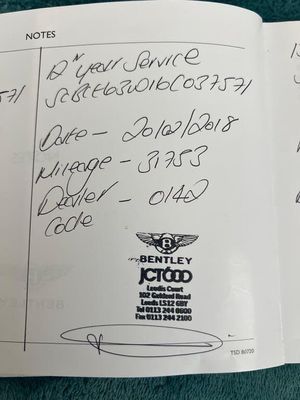 NOTES
12th year Service
SCBCE63W16C037571
Date - 20/02/2018
Mileage - 31753
Dealer - 0142
Code
BENTLEY
JCT600
Leodis Court
102 Gelderd Road
Leeds LS12 6BY
Tel 0113 244 0800
Fax 0113 244 2100
TSD B0720